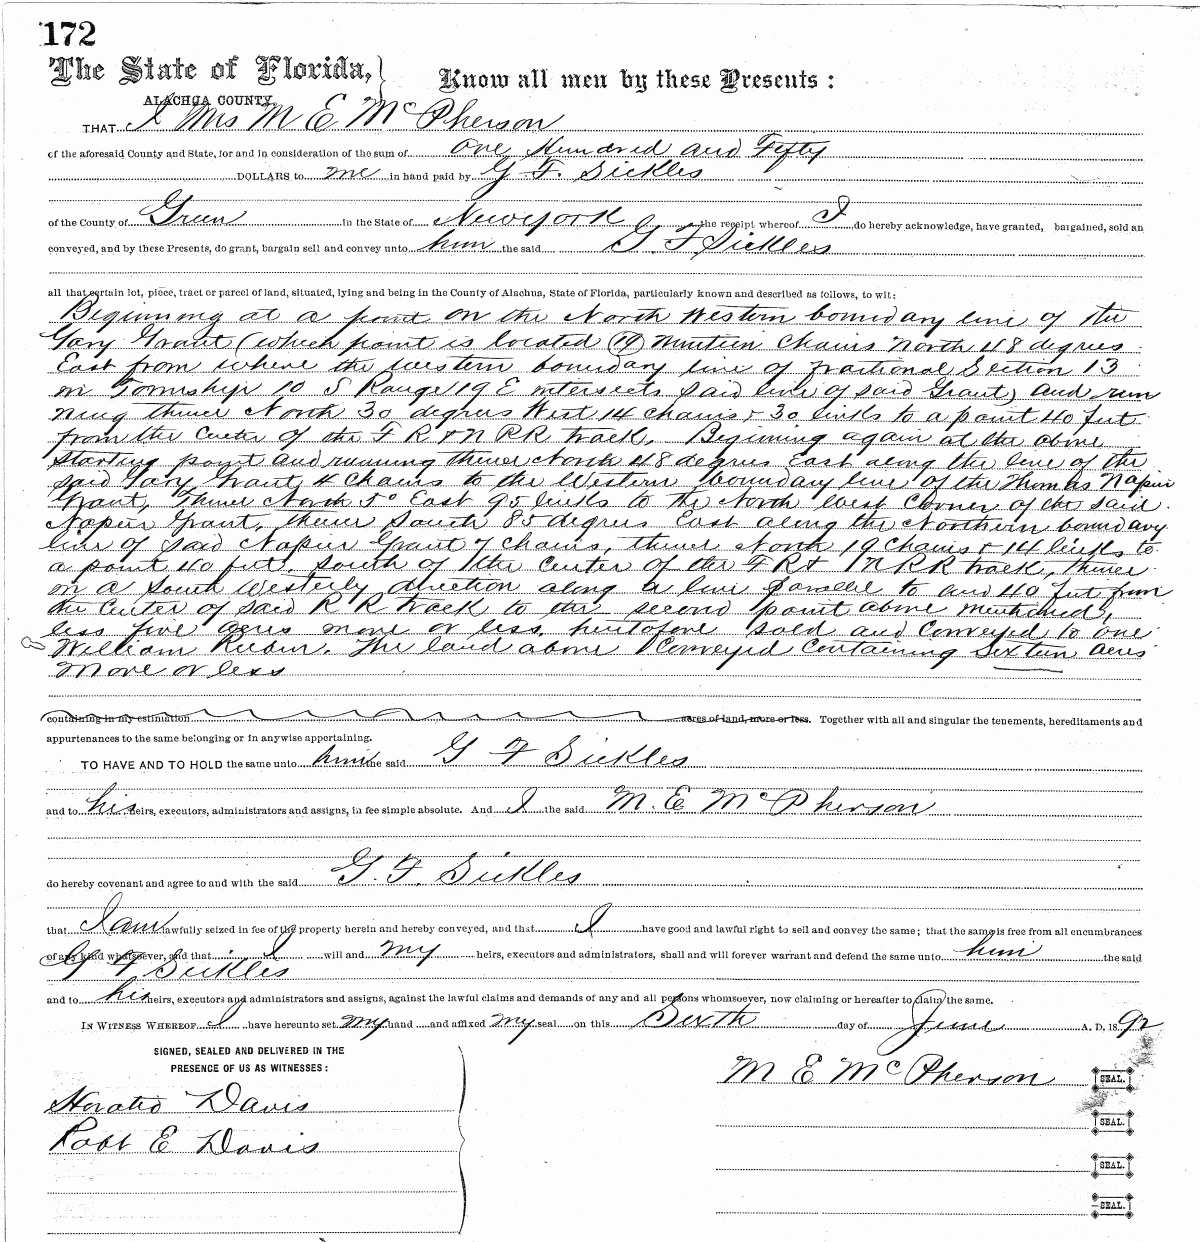 172
The State of Florida, } Know all men by these Presents:
ALACHUA COUNTY.
THAT I Mrs M E McPherson
of the aforesaid County and State, for and in consideration of the sum of One Hundred and Fifty
DOLLARS to me in hand paid by G F. Sickles
of the County of Green in the State of New York the receipt whereof I do hereby acknowledge, have granted, bargained, sold an
conveyed, and by these Presents, do grant, bargain sell and convey unto him the said G F Sickles
all that certain lot, piece, tract or parcel of land, situated, lying and being in the County of Alachua, State of Florida, particularly known and described as follows, to wit:
Beginning at a point on the North Western boundary line of the
Gary Grant (which point is located (19) Nineteen Chains North 48 degrees
East from where the western boundary line of fractional Section 13
in Township 10 S Range 19 E intersects said line of said Grant) and run
ning thence North 30 degrees West 14 chains & 30 links to a point 40 feet
from the Center of the F R & N RR track. Begining again at the above
starting point and running thence North 48 degrees East along the line of the
said Gary Grant 4 chains to the Western boundary line of the Thomas Napier
Grant, Thence North 5° East 95 links to the North West Corner of the said
Napier Grant, thence South 85 degrees East along the Northern boundary
line of said Napier Grant 7 chains, thence North 19 Chains & 14 links to
a point 40 feet, South of the Center of the F R & N RR track, thence
in a South Westerly direction along a line parallel to and 40 feet from
the Center of said R R track to the second point above mentioned,
less five acres more or less, heretofore sold and Conveyed to one
William Rubin. The land above Conveyed Containing Sixteen acres
More or less
containing in my estimation acres of land, more or less. Together with all and singular the tenements, hereditaments and
appurtenances to the same belonging or in anywise appertaining.
TO HAVE AND TO HOLD the same unto him the said G F Sickles
and to his heirs, executors, administrators and assigns, in fee simple absolute. And I the said M. E McPherson
do hereby covenant and agree to and with the said G. F. Sickles
that I am lawfully seized in fee of the property herein and hereby conveyed, and that I have good and lawful right to sell and convey the same; that the same is free from all encumbrances
of any kind whatsoever, and that I will and my heirs, executors and administrators, shall and will forever warrant and defend the same unto him the said
G F Sickles
and to his heirs, executors and administrators and assigns, against the lawful claims and demands of any and all persons whomsoever, now claiming or hereafter to claim the same.
IN WITNESS WHEREOF I have hereunto set my hand and affixed my seal on this Sixth day of June A. D. 1892
SIGNED, SEALED AND DELIVERED IN THE
PRESENCE OF US AS WITNESSES:
M E McPherson SEAL.
Horatio Davis
SEAL.
Robt E Davis
SEAL.
SEAL.